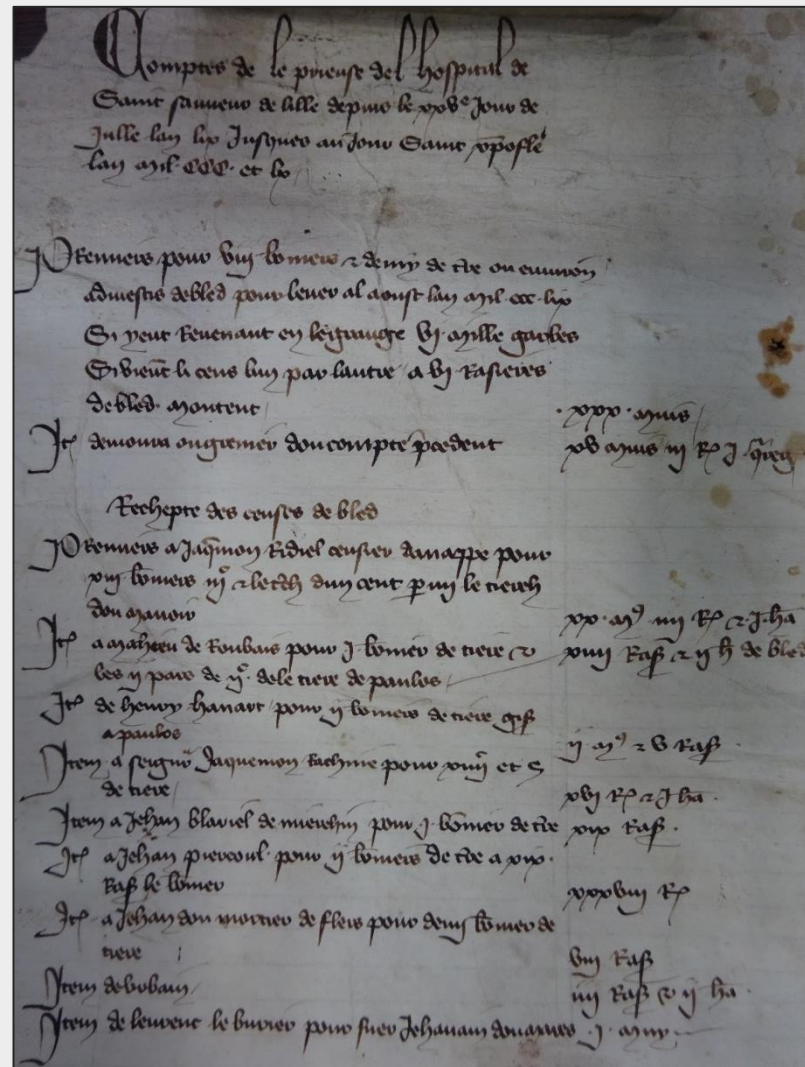 Comptes de le prieuse del hospital de
Saint sauveur de lille depuis le xxve Jour de
Julle lan lix Jusques au Jour Saint xpofle
lan mil CCC et lx
PRemiers pour viii bomers & demy de tre ou environ
advestis de bled pour lever al aoust lan mil ccc lix
Si yeut Revenant en le grange vi mille garbes
Si vient li cens lun par lautre a vi Rasieres
de bled montent xxx muis
It demoura ou grenier dou compte pcedent xv muis iii R I
Rechepte des censes de bled
PRemiers a Jaqmon Ridiel censier danappe pour
xiii bomers iiic & le dun cent le
dou manoir xx m iiii R & I ha
It a mahieu de Roubais pour I bomer de tiere &
les ii pars de iic de le tiere de paulos xiiii Ras & ii h de bled
It de henry hanart pour ii bomers de tiere gis
a paulos ii m & v Ras
Item a seignr Jaquemon pour xiiiic et
de tiere xvi R & I ha
Item a Jehan blariel de pour I bomer de tre xix Ras
It a Jehan piercoul pour ii bomers de tre a xix
Ras le bomer xxxviii R
It a Jehan dou mortier de fleis pour demi bomer de
tiere viii Ras
Item iiii Ras & ii ha
Item de leurent le burier pour suer i muy